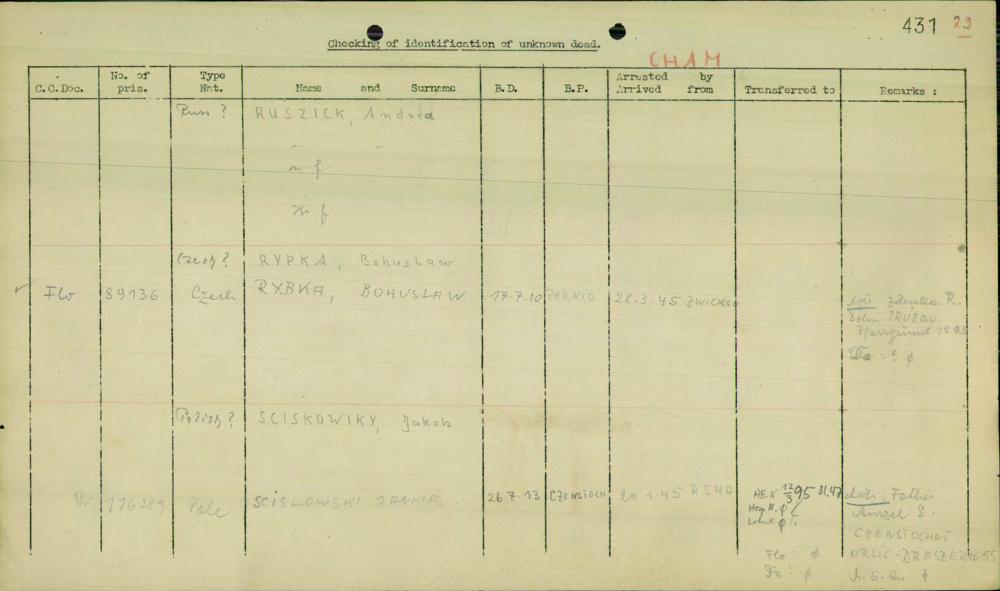 431 29
Checking of identification of unknown dead.
CHAM
C.C.Doc. No. of pris. Type Nat. Name and Surname B.D. B.P. Arrested by Arrived from Transferred to Remarks :
Russ ? RUSZICK, Andrea
n f
n f
Czech ? RYPKA, Bohuslaw
✓ Flo 89136 Czech RYBKA, BOHUSLAW 17.7.10 28.3.45 ZWICKAU Zdenka R.
Böhm. TRÜBAU
Pfarrgrund
Da : ϕ
Polish ? SCISKOWIKY, Jakob
Bu 116289 Pole SCISLOWSKI 26.7.13 CZENSTOCH 20.1.45 12/3 95 Father
S.
CZENSTOCHAU
Flo : ϕ ORLIC-DRESZER
Da : ϕ